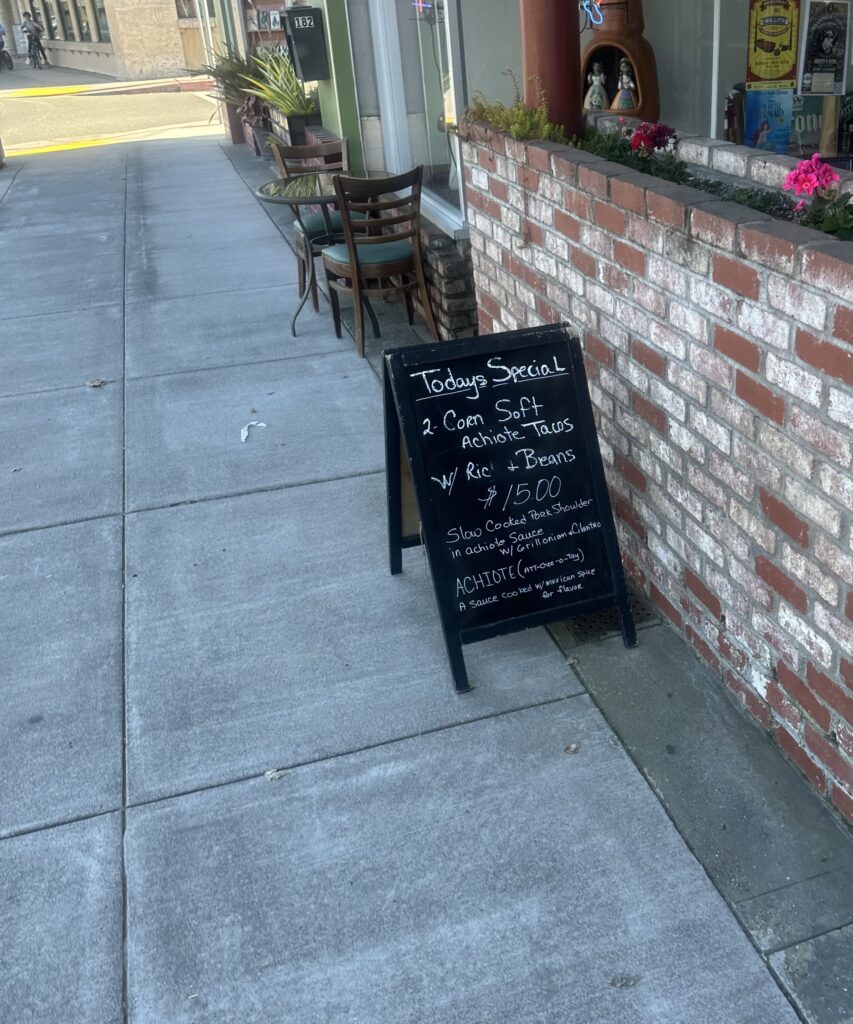 182
WILLITS
Todays Special
2 Corn Soft
Achiote Tacos
W/ Ric + Beans
$15.00
Slow Cooked Pork Shoulder
in achiote Sauce
W/ Grill onion & Cilantro
ACHIOTE (ATT-Chee-O-Tay)
A Sauce Cooked w/ mexican Spice
for flavor.